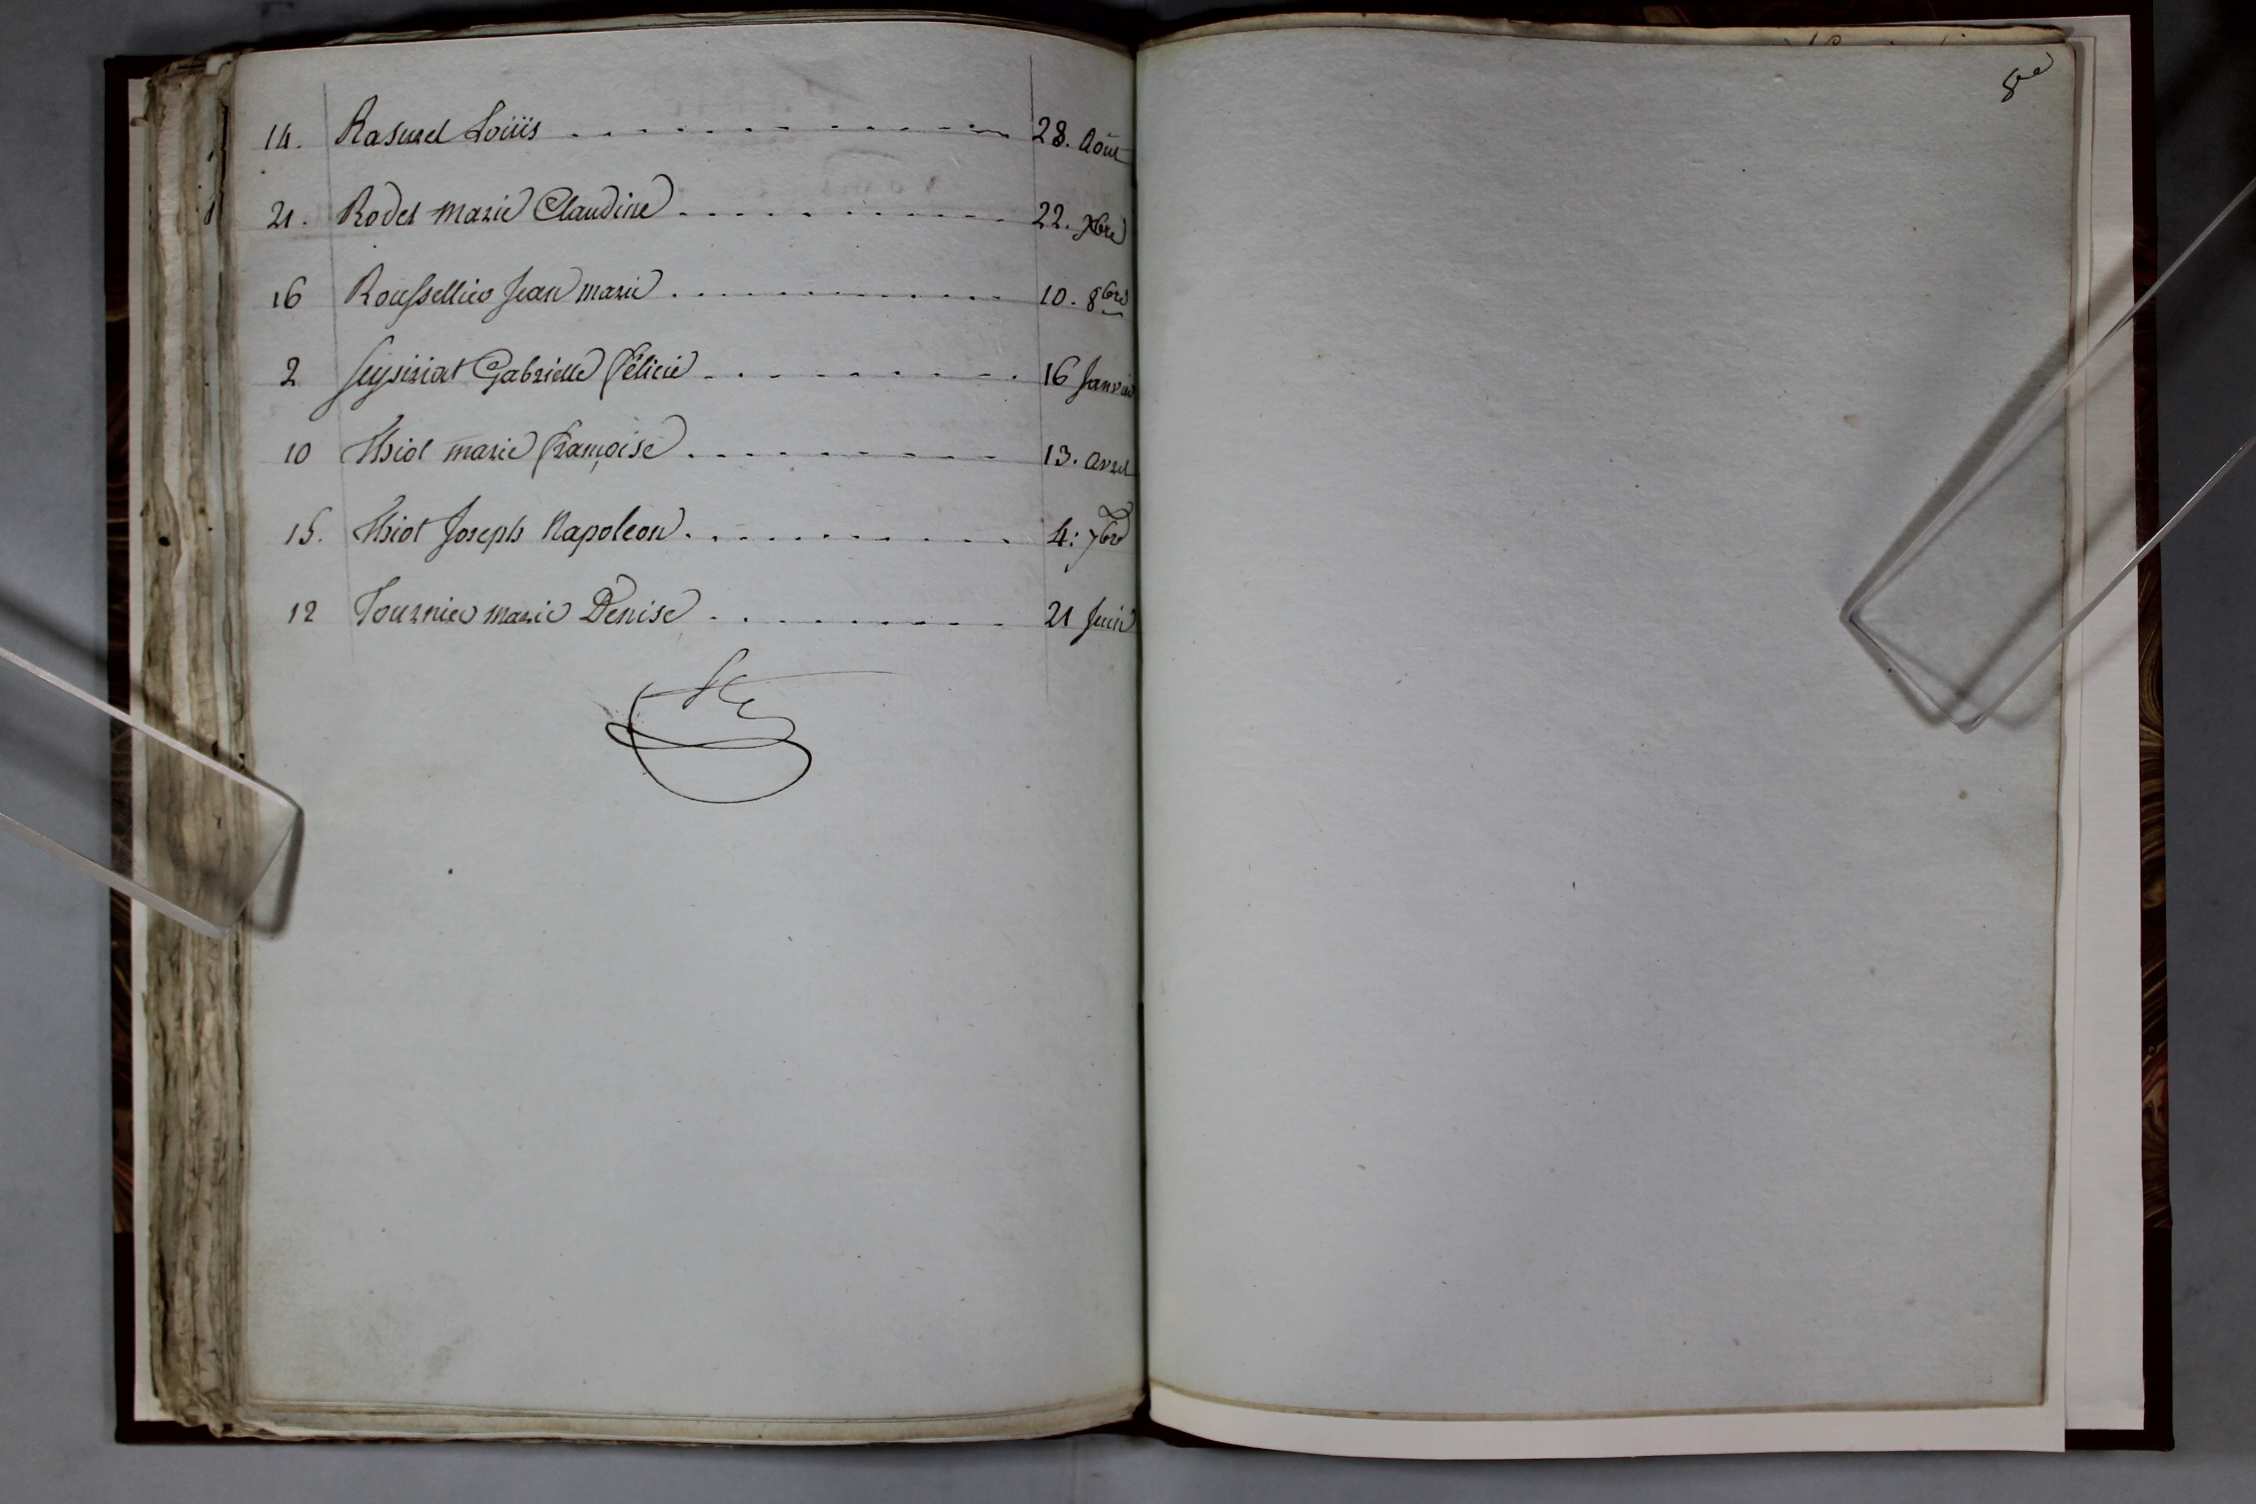 14. Rasurel Loüis 28. Août
21. Rodet marie Claudine 22. Xbre
16 Roussellier Jean marie 10. 8bre
2 Seysiriat Gabrielle Félicie 16 Janvier
10 Thiot marie françoise 13. avril
15. Thiot Joseph Napoleon 4: 7bre
12 Tournier marie Denise 21 Juin
8e